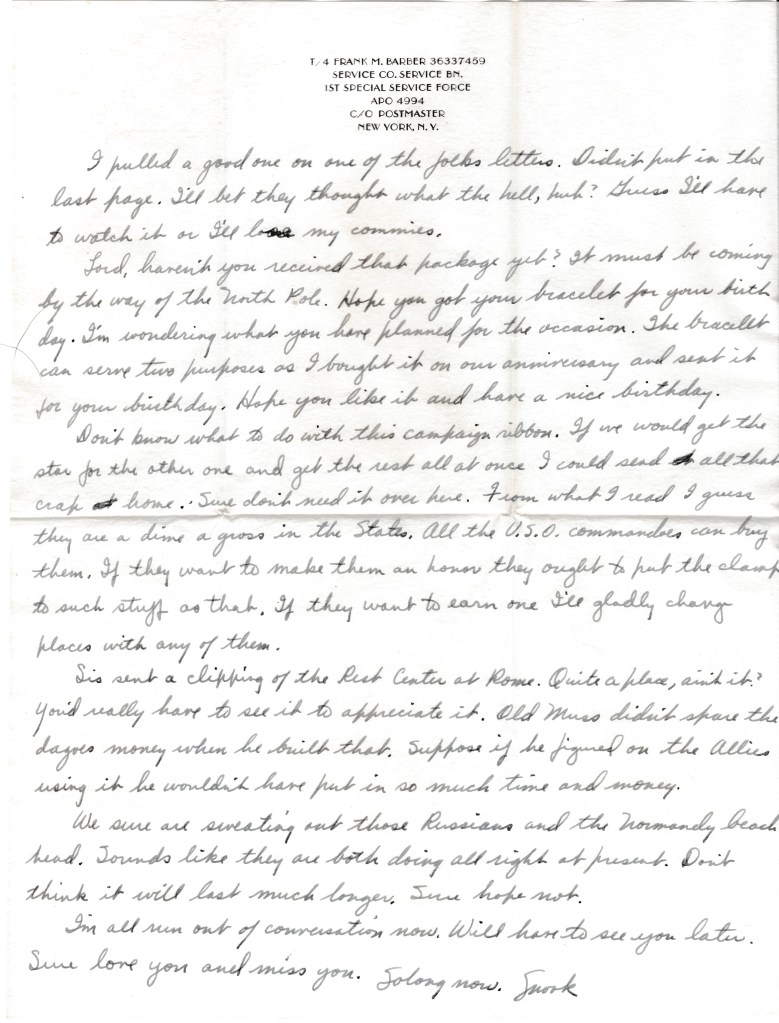 T/4 FRANK M. BARBER 36337459
SERVICE CO. SERVICE BN.
1ST SPECIAL SERVICE FORCE
APO 4994
C/O POSTMASTER
NEW YORK, N.Y.
I pulled a good one on one of the folks letters. Didn't put in the
last page. I'll bet they thought what the hell, huh? Guess I'll have
to watch it or I'll lose my commies.
Lord, haven't you received that package yet? It must be coming
by the way of the North Pole. Hope you got your bracelet for your birth
day. I'm wondering what you have planned for the occasion. The bracelet
can serve two purposes as I bought it on our anniversary and sent it
for your birthday. Hope you like it and have a nice birthday.
Don't know what to do with this campaign ribbon. If we would get the
star for the other one and get the rest all at once I could send all that
crap home. Sure don't need it over here. From what I read I guess
they are a dime a gross in the States. All the U.S.O. commandoes can buy
them. If they want to make them an honor they ought to put the clamp
to such stuff as that. If they want to earn one I'll gladly change
places with any of them.
Sis sent a clipping of the Rest Center at Rome. Quite a place, ain't it?
You'd really have to see it to appreciate it. Old Muss didn't spare the
dagoes money when he built that. Suppose if he figured on the Allies
using it he wouldn't have put in so much time and money.
We sure are sweating out those Russians and the Normandy beach
head. Sounds like they are both doing all right at present. Don't
think it will last much longer. Sure hope not.
I'm all run out of conversation now. Will have to see you later.
Sure love you and miss you. Solong now. Snook